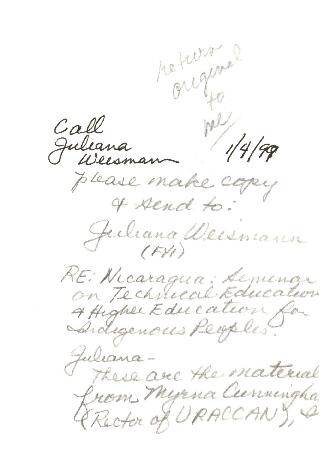 return
original
to
me
Call
Juliana
Weismann 1/4/99
please make copy
& send to:
Juliana Weismann
(FYI)
RE: Nicaragua: Seminar
on Technical Education
& Higher Education for
Indigenous Peoples.
Juliana-
These are the material
from Myrna Cunningha
(Rector of URACCAN),